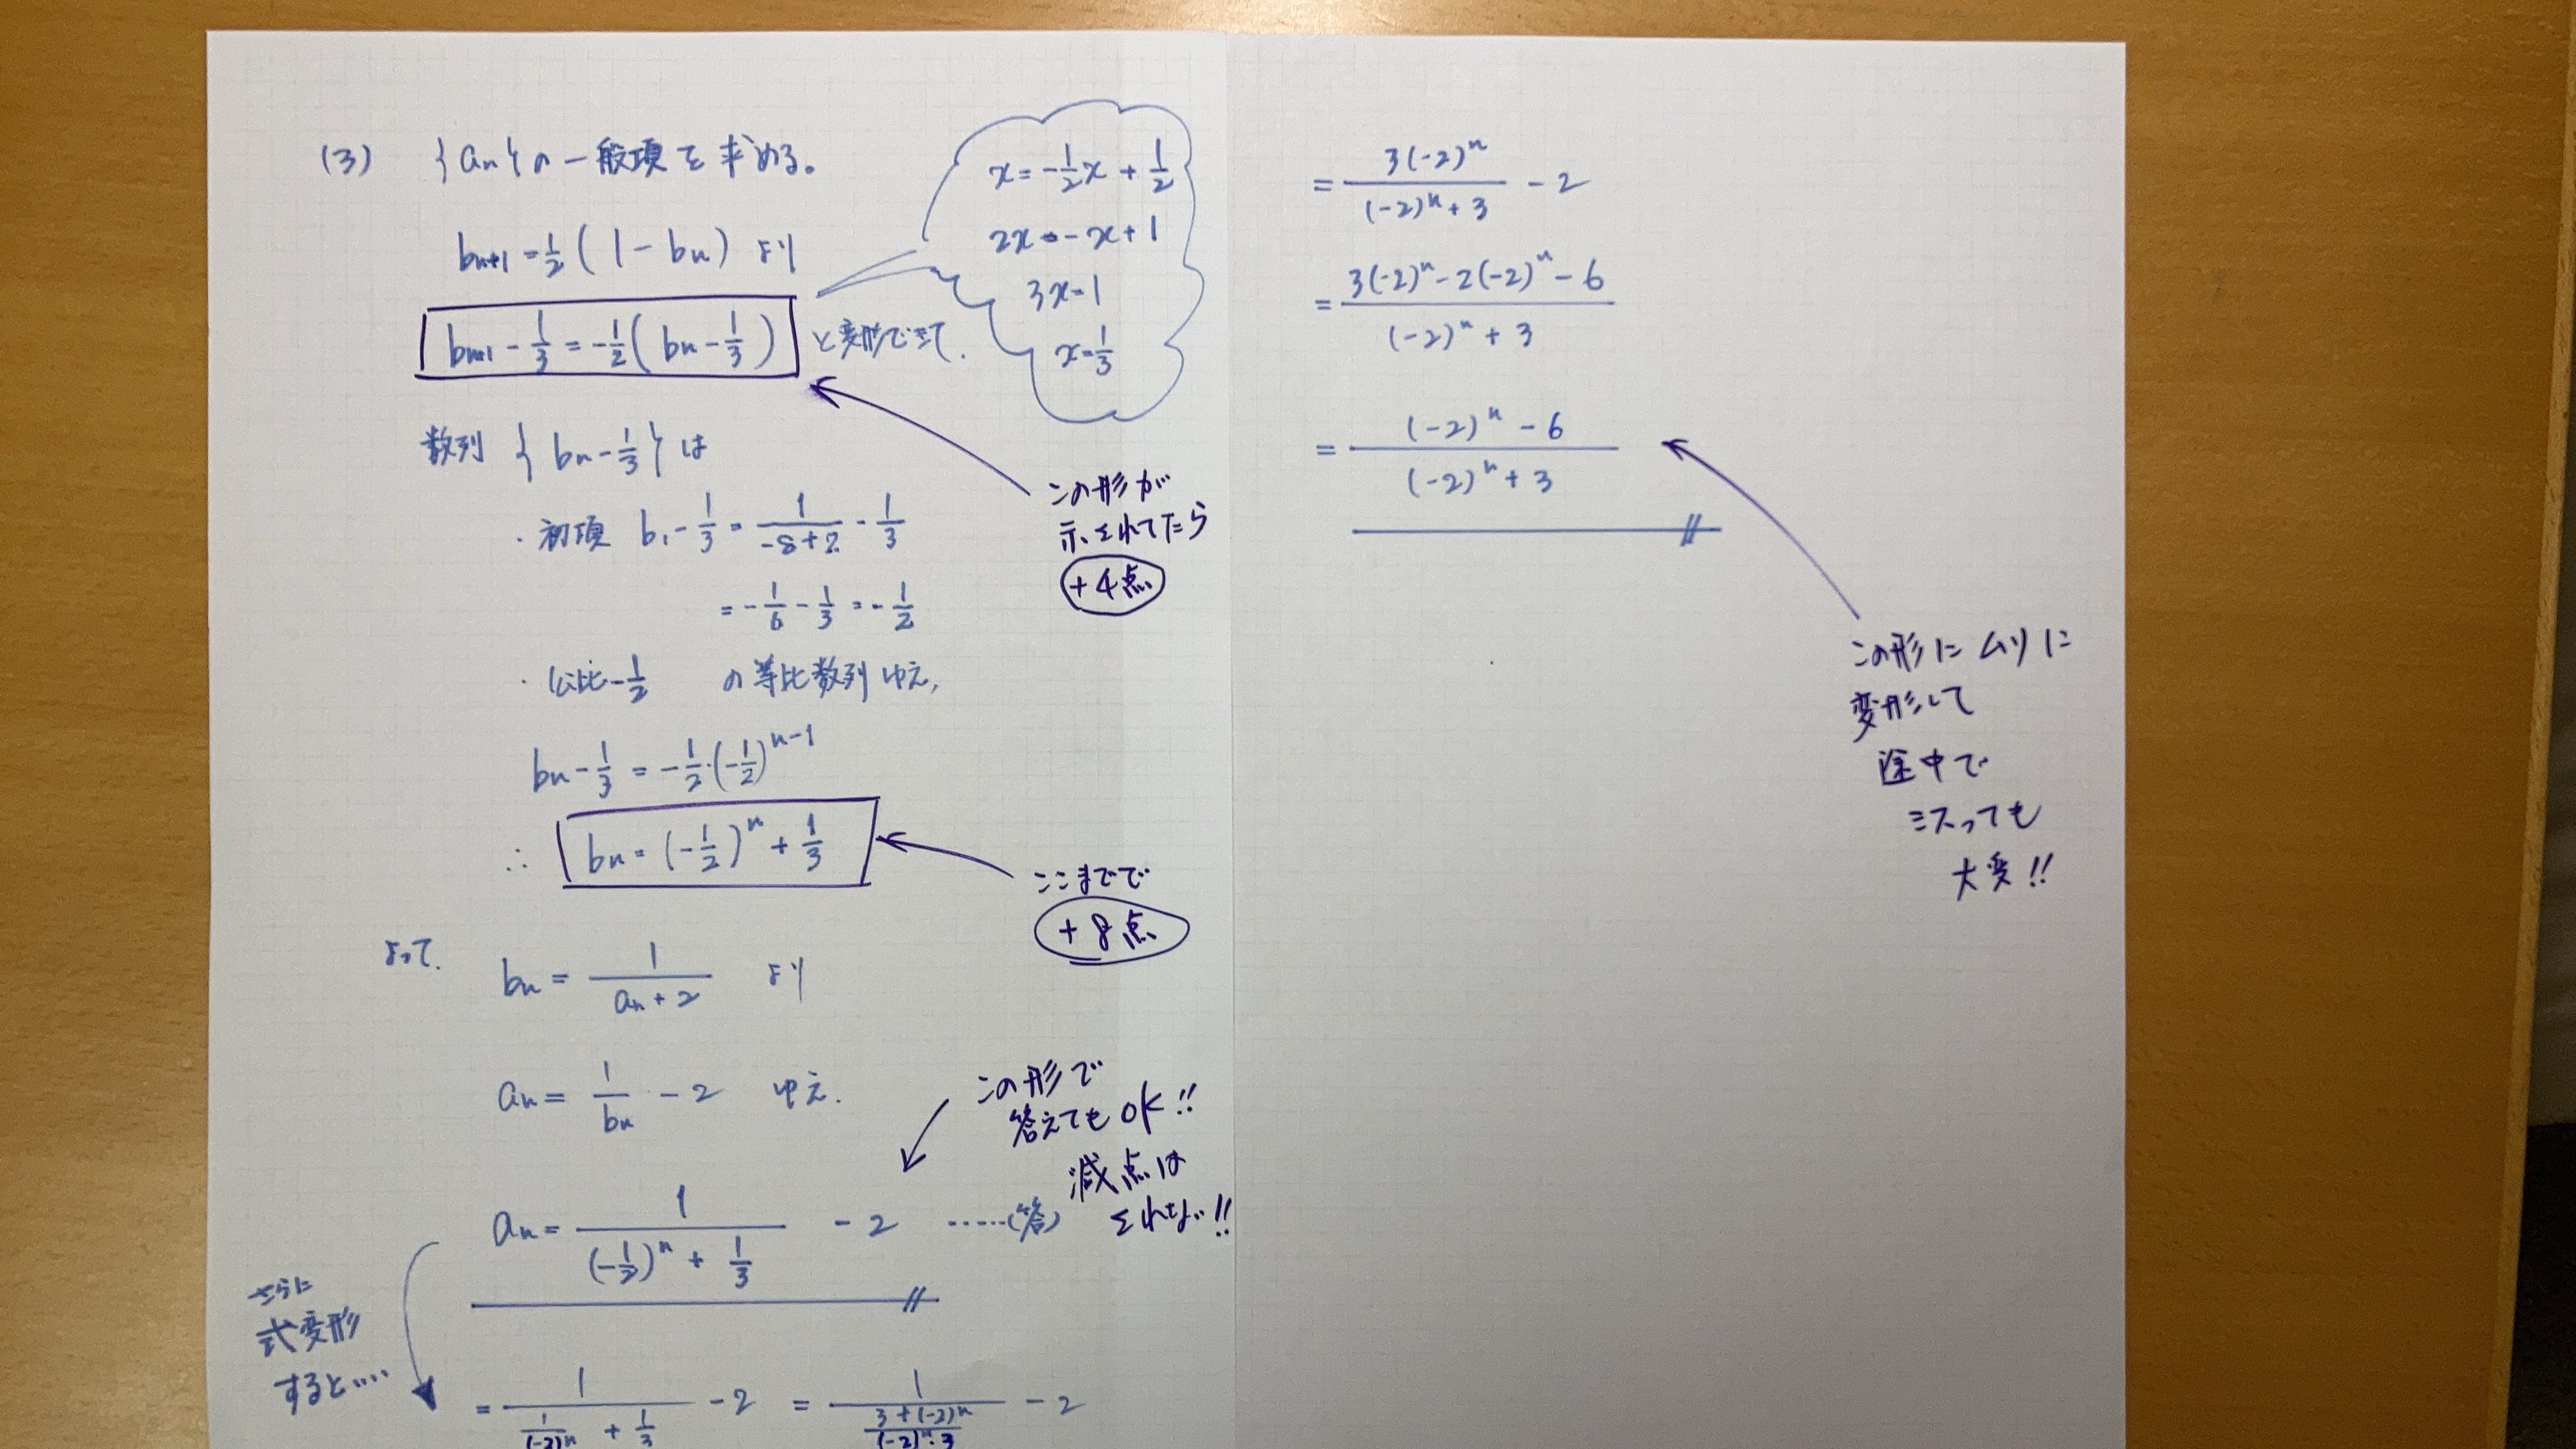 (3) {an}の一般項を求める。
bn+1 = 1/2 (1 - bn) より
bn+1 - 1/3 = -1/2 (bn - 1/3) と変形できて.
x = -1/2 x + 1/2
2x = -x + 1
3x = 1
x = 1/3
この形が
示されてたら
+4点
数列 {bn - 1/3} は
・初項 b1 - 1/3 = 1/(-8+2) - 1/3
= -1/6 - 1/3 = -1/2
・公比 -1/2 の等比数列ゆえ,
bn - 1/3 = -1/2・(-1/2)^(n-1)
∴ bn = (-1/2)^n + 1/3
ここまでで
+8点
よって.
bn = 1/(an + 2) より
an = 1/bn - 2 ゆえ.
この形で
答えてもOK!!
減点は
されない!!
an = 1/((-1/2)^n + 1/3) - 2 ……(答)
さらに
式変形
すると….
= 1/(1/(-2)^n + 1/3) - 2 = 1/((3+(-2)^n)/((-2)^n・3)) - 2
= 3(-2)^n/((-2)^n + 3) - 2
= (3(-2)^n - 2(-2)^n - 6)/((-2)^n + 3)
= ((-2)^n - 6)/((-2)^n + 3)
この形にムリに
変形して
途中で
ミスっても
大変!!